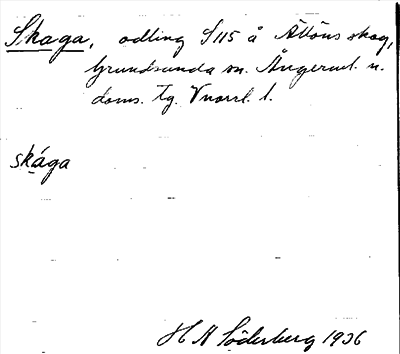 Skaga, odling S 115 å Ällöns skog,
Grundsunda sn. Ångerml. n.
doms. tg. Vnorrl. l.
skága
H A Söderberg 1936